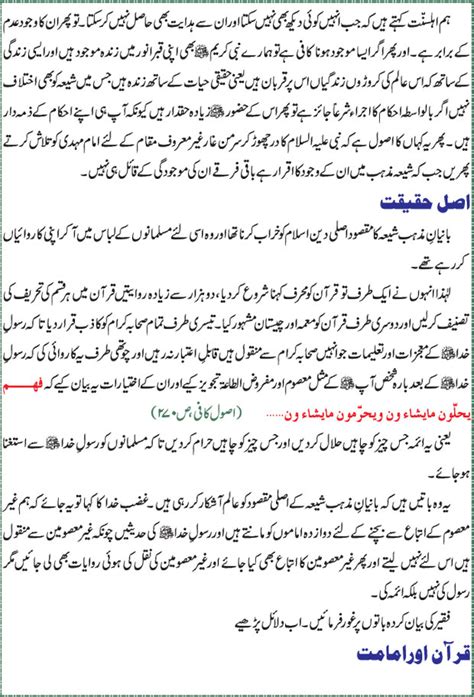 ہم اہلسنّت کہتے ہیں کہ جب انہیں کوئی دیکھ بھی نہیں سکتا اور ان سے ہدایت بھی حاصل نہیں کر سکتا۔ تو پھر ان کا وجود عدم
کے برابر ہے۔ اور پھر اگر ایسا موجود ہونا کافی ہے تو ہمارے نبی کریم ﷺ بھی اپنی قبر انور میں زندہ موجود ہیں اور ایسی زندگی
کے ساتھ کہ اس عالم کی کروڑوں زندگیاں اس پر قربان ہیں یعنی حقیقی حیات کے ساتھ زندہ ہیں جس میں شیعہ کو بھی اختلاف
نہیں اگر بالواسطہ احکام کا اجراء شرعاً جائز ہے تو پھر اس کے حضور ﷺ زیادہ حقدار ہیں کیونکہ آپ ہی اپنے احکام کے ذمہ دار
ہیں۔ پھر یہ کہاں کا اصول ہے کہ نبی علیہ السلام کا در چھوڑ کر سرمن غار غیر معروف مقام کے لئے امام مہدی کو تلاش کرتے
پھریں جب کہ شیعہ مذہب میں ان کے وجود کا اقرار ہے باقی فرقے ان کی موجودگی کے قائل ہی نہیں۔
اصل حقیقت
بانیان مذہب شیعہ کا مقصود اصلی دین اسلام کو خراب کرنا تھا اور وہ اسی لئے مسلمانوں کے لباس میں آ کر اپنی کاروائیاں
کر رہے تھے۔
لہٰذا انہوں نے ایک طرف تو قرآن کو محرف کہنا شروع کر دیا، دو ہزار سے زیادہ روایتیں قرآن میں ہر قسم کی تحریف کی
تصنیف کر لیں اور دوسری طرف قرآن کو معمہ اور چیستان مشہور کیا۔ تیسری طرف تمام صحابہ کرام کو کاذب قرار دیا تا کہ رسول
خدا ﷺ کے معجزات اور تعلیمات جو انہیں صحابہ کرام سے منقول ہیں قابلِ اعتبار نہ رہیں اور چوتھی طرف یہ کاروائی کی کہ رسول
خدا ﷺ کے بعد بارہ شخص آپ ﷺ کے مثل معصوم اور مفروض الطاعۃ تجویز کیے اور ان کے اختیارات یہ بیان کیے کہ فهم
يحلّون مايشاء ون ويحرّمون مايشاء ون...... (اصول کافی ص ۲۷۰)
یعنی یہ ائمہ جس چیز کو چاہیں حلال کر دیں اور جس چیز کو چاہیں حرام کر دیں تا کہ مسلمانوں کو رسولِ خدا ﷺ سے استغنا
ہو جائے۔
یہ وہ باتیں ہیں کہ بانیان مذہب شیعہ کے اصلی مقصود کو عالم آشکار کر رہی ہیں۔ غضب خدا کا کہا تو یہ جائے کہ ہم غیر
معصوم کے اتباع سے بچنے کے لئے دوازدہ اماموں کو مانتے ہیں اور رسولِ خدا ﷺ کی حدیثیں چونکہ غیر معصومین سے منقول
ہیں اس لئے نہیں لیتے اور پھر غیر معصومین کا اتباع بھی کیا جائے اور غیر معصومین کی نقل کی ہوئی روایات بھی لی جائیں مگر
رسول کی نہیں بلکہ ائمہ کی۔
فقیر کی بیان کردہ باتوں پر غور فرمائیں۔ اب دلائل پڑھیے
قرآن اور امامت